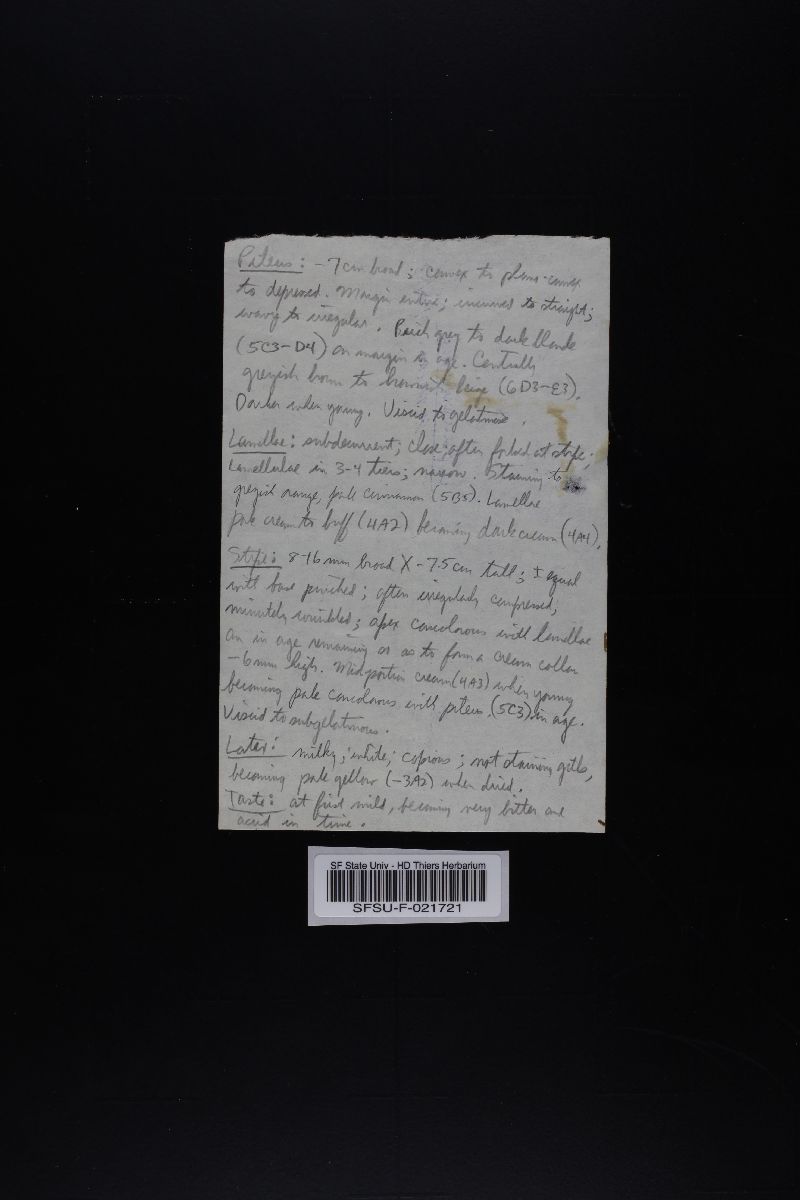 Pileus: -7cm broad; convex to plano-convex
to depressed. Margin entire; incurved to straight;
wavy to irregular. grey to dark blonde
(5C3-D4) on margin in age. Centrally
greyish brown to brownish beige (6D3-E3).
Darker when young. Viscid to gelatinous.
Lamellae: subdecurrent; close; often forked at stipe;
Lamellulae in 3-4 tiers; narrow. Staining to
greyish orange, pale cinnamon (5B5). Lamellae
pale cream to buff (4A2) becoming dark cream (4A4).
Stipe: 8-16mm broad X -7.5cm tall; ± equal
with base pinched; often irregularly compressed;
minutely wrinkled; apex concolorous with lamellae
an in age remaining so as to form a cream collar
-6mm high. Midportion cream (4A3) when young
becoming pale concolorous with pileus (5C3) in age.
Viscid to subgelatinous.
Latex: milky; white; copious; not staining gills,
becoming pale yellow (-3A2) when dried.
Taste: at first mild, becoming very bitter and
acrid in time.
SF State Univ - HD Thiers Herbarium
SFSU-F-021721